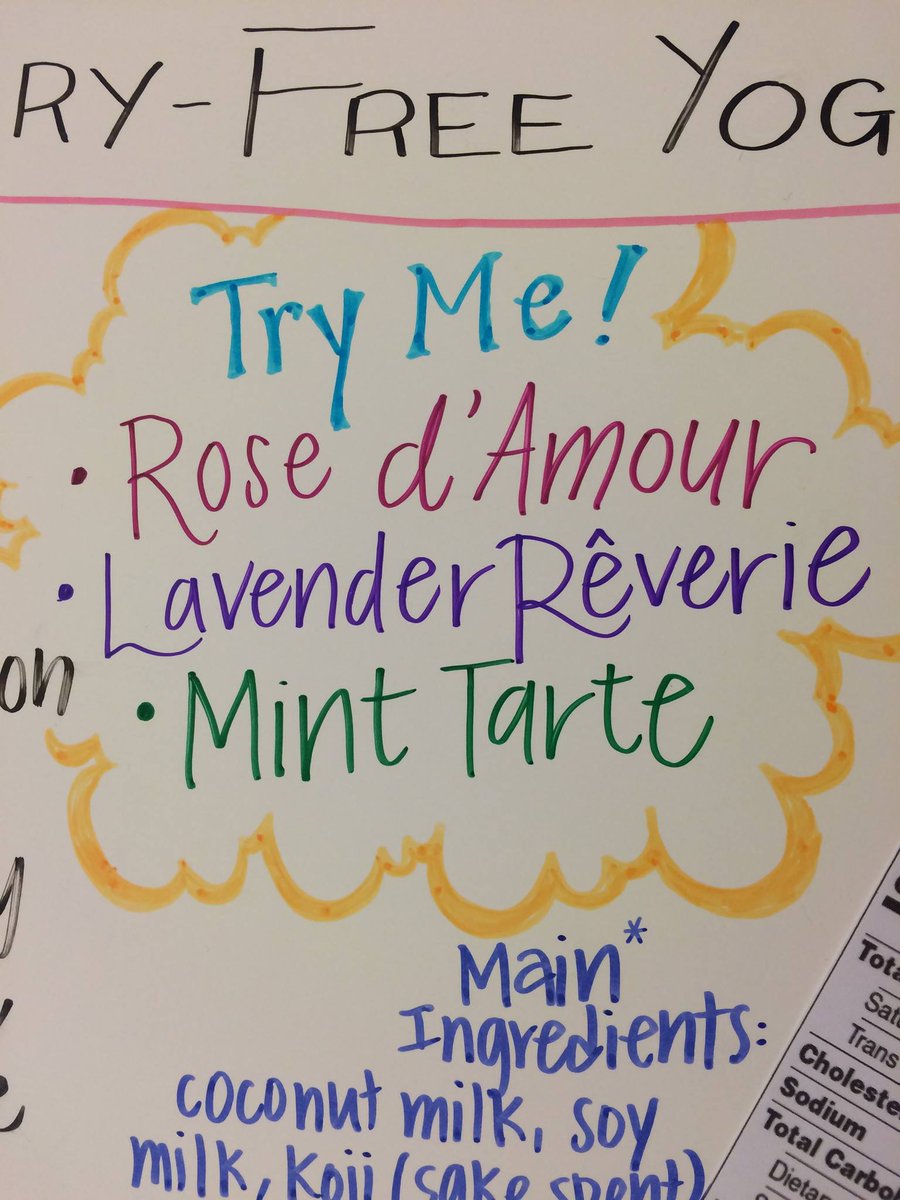 RY-FREE YOG
Try Me!
• Rose d'Amour
• Lavender Rêverie
on
• Mint Tarte
Main*
Ingredients:
coconut milk, soy
milk, Koji (sake spent)
Tota
Satu
Trans
Choleste
Sodium
Total Carbo
Dieta